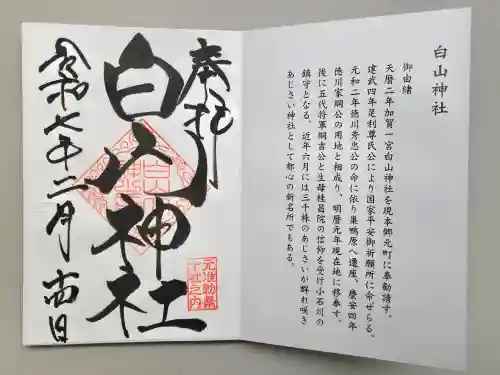 白山神社
御由緒
天暦二年加賀一宮白山神社を現本郷元町に奉勧請す。
建武四年足利尊氏公により国家平安御祈願所に命ぜらる。
元和二年徳川秀忠公の命に依り巣鴨原へ遷座、慶安四年
徳川家綱公の用地と相成り、明暦元年現在地に移奉す。
後に五代将軍綱吉公と生母桂昌院の信仰を受け小石川の
鎮守となる。近年六月には三千株のあじさいが群れ咲き
あじさい神社として都心の新名所でもある。
奉拝
白山神社
令和七年二月 日
元准勅祭
十社之内